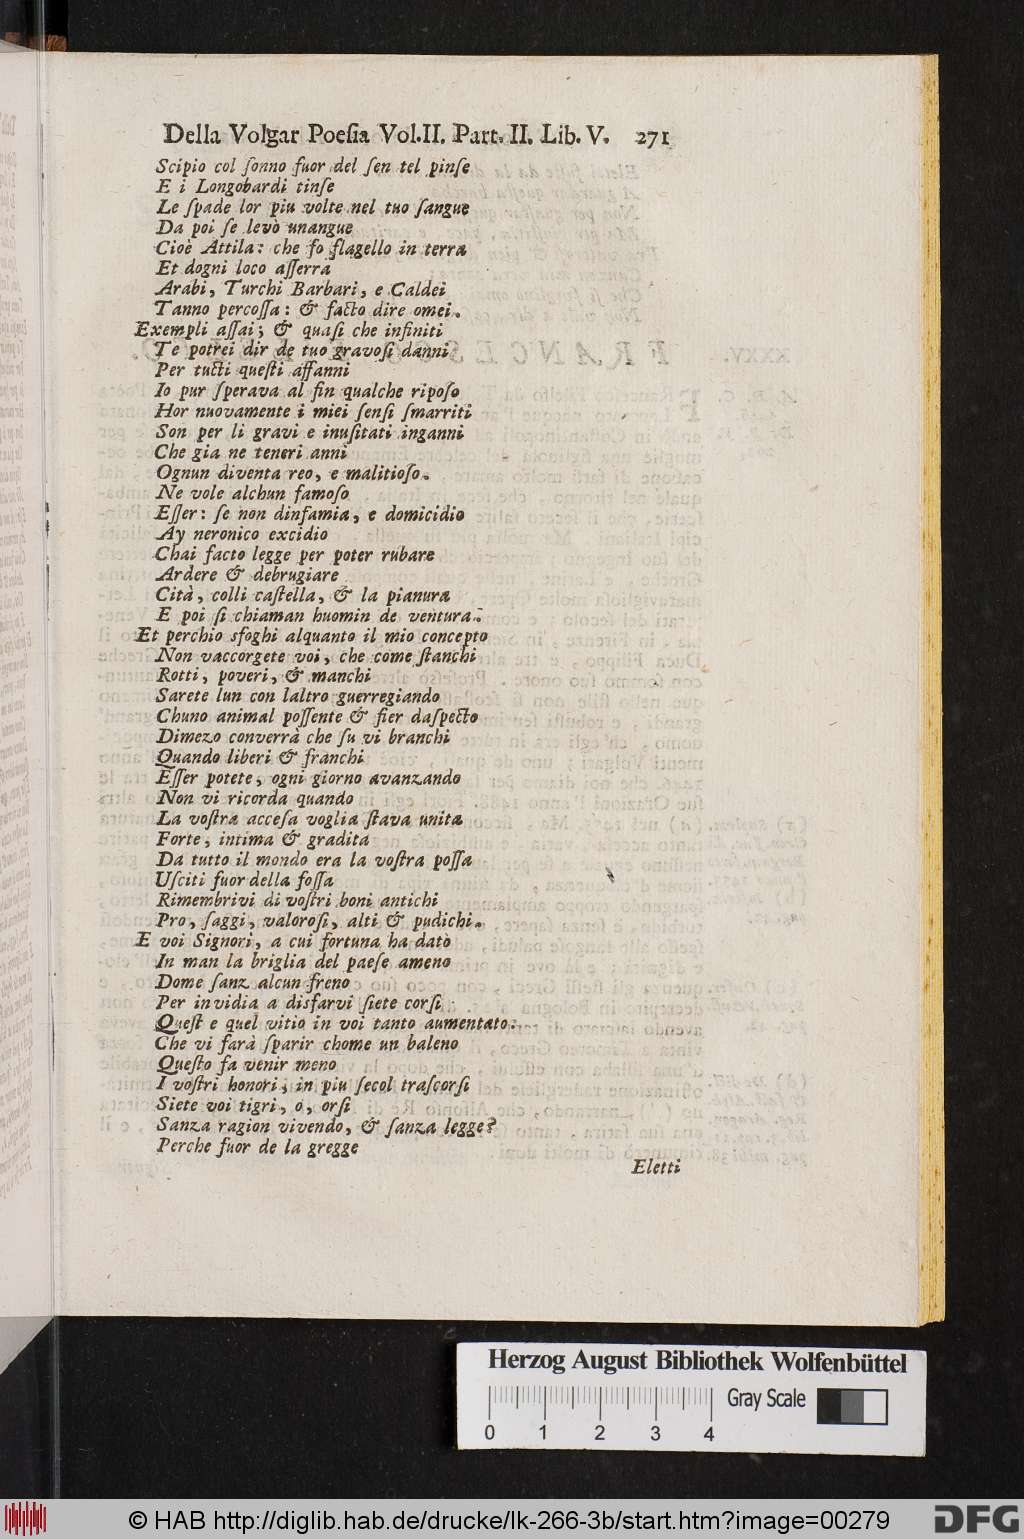 Della Volgar Poeſia Vol.II. Part. II. Lib. V. 271
Scipio col ſonno fuor del ſen tel pinſe
E i Longobardi tinſe
Le ſpade lor piu volte nel tuo ſangue
Da poi ſe levò unangue
Cioè Attila: che fo flagello in terra
Et dogni loco aſſerra
Arabi, Turchi Barbari, e Caldei
Tanno percoſſa: & facto dire omei.
Exempli aſſai; & quaſi che infiniti
Te potrei dir de tuo gravoſi danni
Per tucti queſti affanni
Io pur ſperava al fin qualche ripoſo
Hor nuovamente i miei ſenſi ſmarriti
Son per li gravi e inuſitati inganni
Che gia ne teneri anni
Ognun diventa reo, e malitioſo.
Ne vole alchun famoſo
Eſſer: ſe non dinfamia, e domicidio
Ay neronico excidio
Chai facto legge per poter rubare
Ardere & debrugiare
Cità, colli caſtella, & la pianura
E poi ſi chiaman huomin de ventura.
Et perchio sfoghi alquanto il mio concepto
Non vaccorgete voi, che come ſtanchi
Rotti, poveri, & manchi
Sarete lun con laltro guerregiando
Chuno animal poſſente & fier daſpecto
Dimezo converrà che ſu vi branchi
Quando liberi & franchi
Eſſer potete, ogni giorno avanzando
Non vi ricorda quando
La voſtra acceſa voglia ſtava unita
Forte, intima & gradita
Da tutto il mondo era la voſtra poſſa
Uſciti fuor della foſſa
Rimembrivi di voſtri boni antichi
Pro, ſaggi, valoroſi, alti & pudichi.
E voi Signori, a cui fortuna ha datò
In man la briglia del paeſe ameno
Dome ſanz alcun freno
Per invidia a disfarvi ſiete corſi
Queſt e quel vitio in voi tanto aumentato:
Che vi farà ſparir chome un baleno
Queſto fa venir meno
I voſtri honori, in piu ſecol traſcorſi
Siete voi tigri, o, orſi
Sanza ragion vivendo, & ſanza legge?
Perche fuor de la gregge
Eletti
Herzog August Bibliothek Wolfenbüttel
Gray Scale
0 1 2 3 4
© HAB http://diglib.hab.de/drucke/lk-266-3b/start.htm?image=00279
DFG